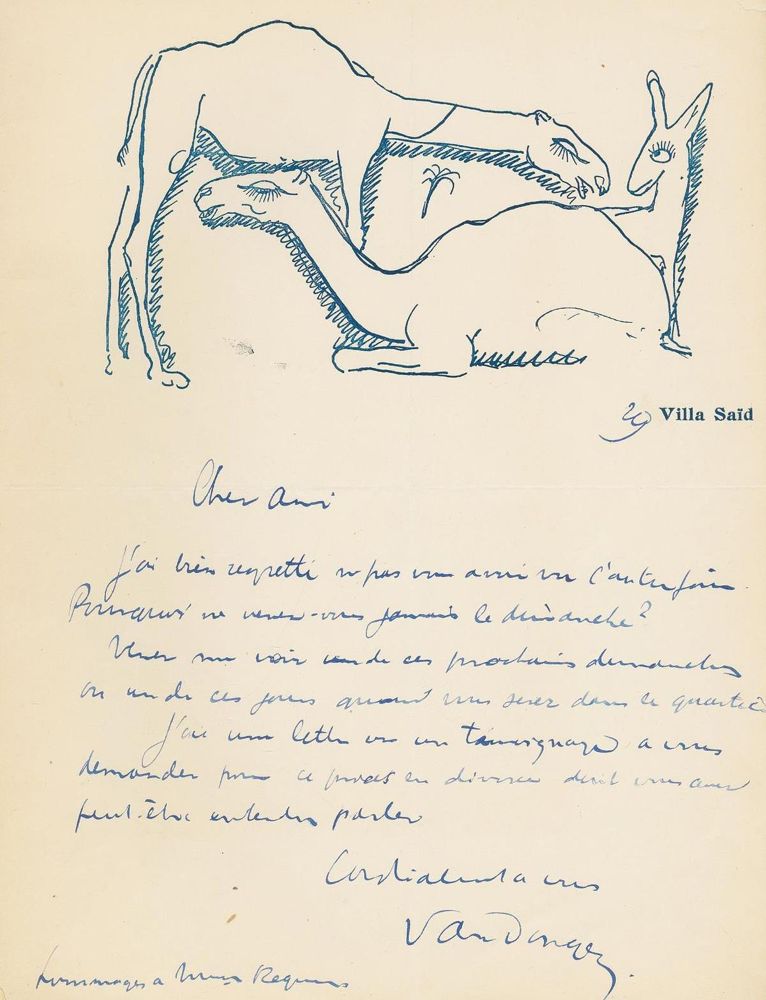 29 Villa Saïd
Cher ami
J'ai bien regretté ne pas vous avoir vu l'autre fois.
Pourquoi ne venez-vous jamais le dimanche?
Venez me voir un de ces prochains dimanches
ou un de ces jours quand vous serez dans le quartier
J'ai une lettre ou un témoignage a vous
demander pour ce procès en divorce dont vous avez
peut-être entendu parler
Cordialement a vous
Van Dongen.
hommages a